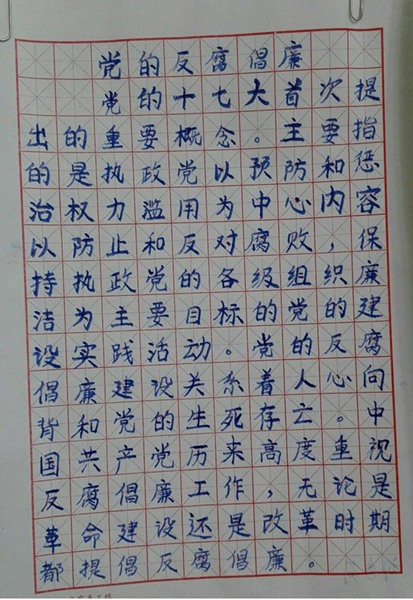 党的反腐倡廉
党的十七大首次提
出的重要概念。主要指
的是执政党以预防和惩
治权力滥用为中心内容
以防止和反对腐败，保
持执政党的各级组织廉
洁为主要目标的党的建
设实践活动。党的反腐
倡廉建设关系着人心向
背和党的生死存亡。中
国共产党历来高度重视
反腐倡廉工作，无论是
革命建设还是改革时期
都提倡反腐倡廉。